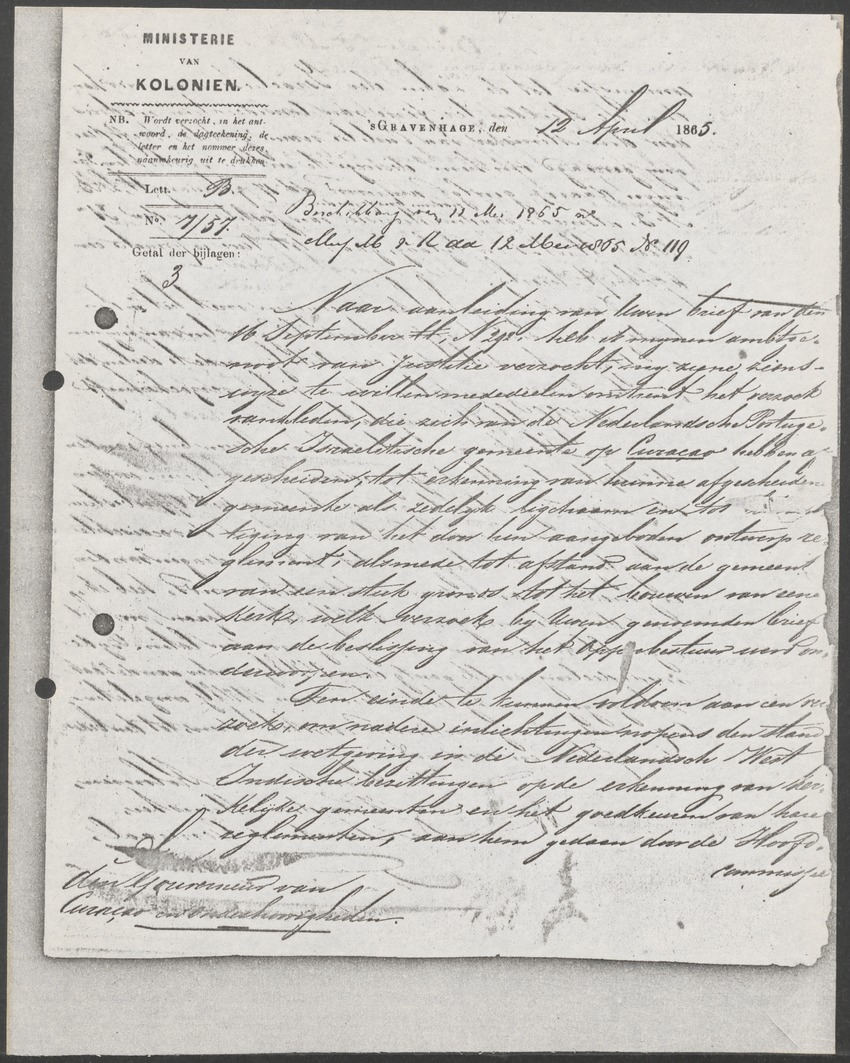 MINISTERIE
VAN
KOLONIEN.
NB. Wordt verzocht, in het ant-
woord, de dagteekening, de
letter en het nommer dezes,
naauwkeurig uit te drukken
'sGRAVENHAGE, den 12 April 1865.
Lett. B
No. 7/57.
Getal der bijlagen:
3
12 Mei 1865 no
12 Mei 1865 No 119
Naar aanleiding van Uwen brief van den
16 September ll, No heb ik mynen ambtge-
noot van Justitie verzocht, my zyne ziens-
wyze te willen mededeelen omtrent het verzoek
van leden, die zich van de Nederlandsche Portuge-
sche Israelitische gemeente op Curaçao hebben af
gescheiden, tot erkenning van hunne afgescheiden
gemeente als zedelyk ligchaam en tot
tiging van het door hen aangeboden ontwerp re
glement, alsmede tot afstand aan de gemeent
van een stuk gronds tot het bouwen van eene
kerk, welk verzoek by Uwen genoemden brief
aan de beslissing van het Opperbestuur werd on-
derworpen.
Ten einde te kunnen voldoen aan een ver
zoek, om nadere inlichtingen nopens den stand
der wetgeving in de Nederlandsch West
Indische bezittingen op de erkenning van ker
kelyke gemeenten en het goedkeuren van hare
reglementen, aan hem gedaan door de Hoofd-
commissie
den Gouverneur van
Curaçao en onderhoorigheden.